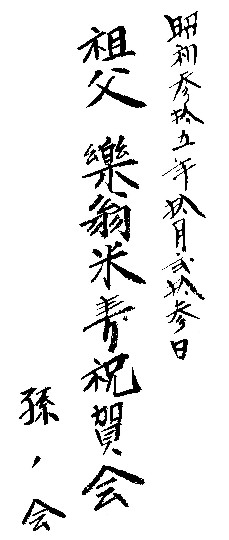 昭和参拾五年拾月弐拾参日
祖父 樂翁米寿祝賀会
孫ノ会